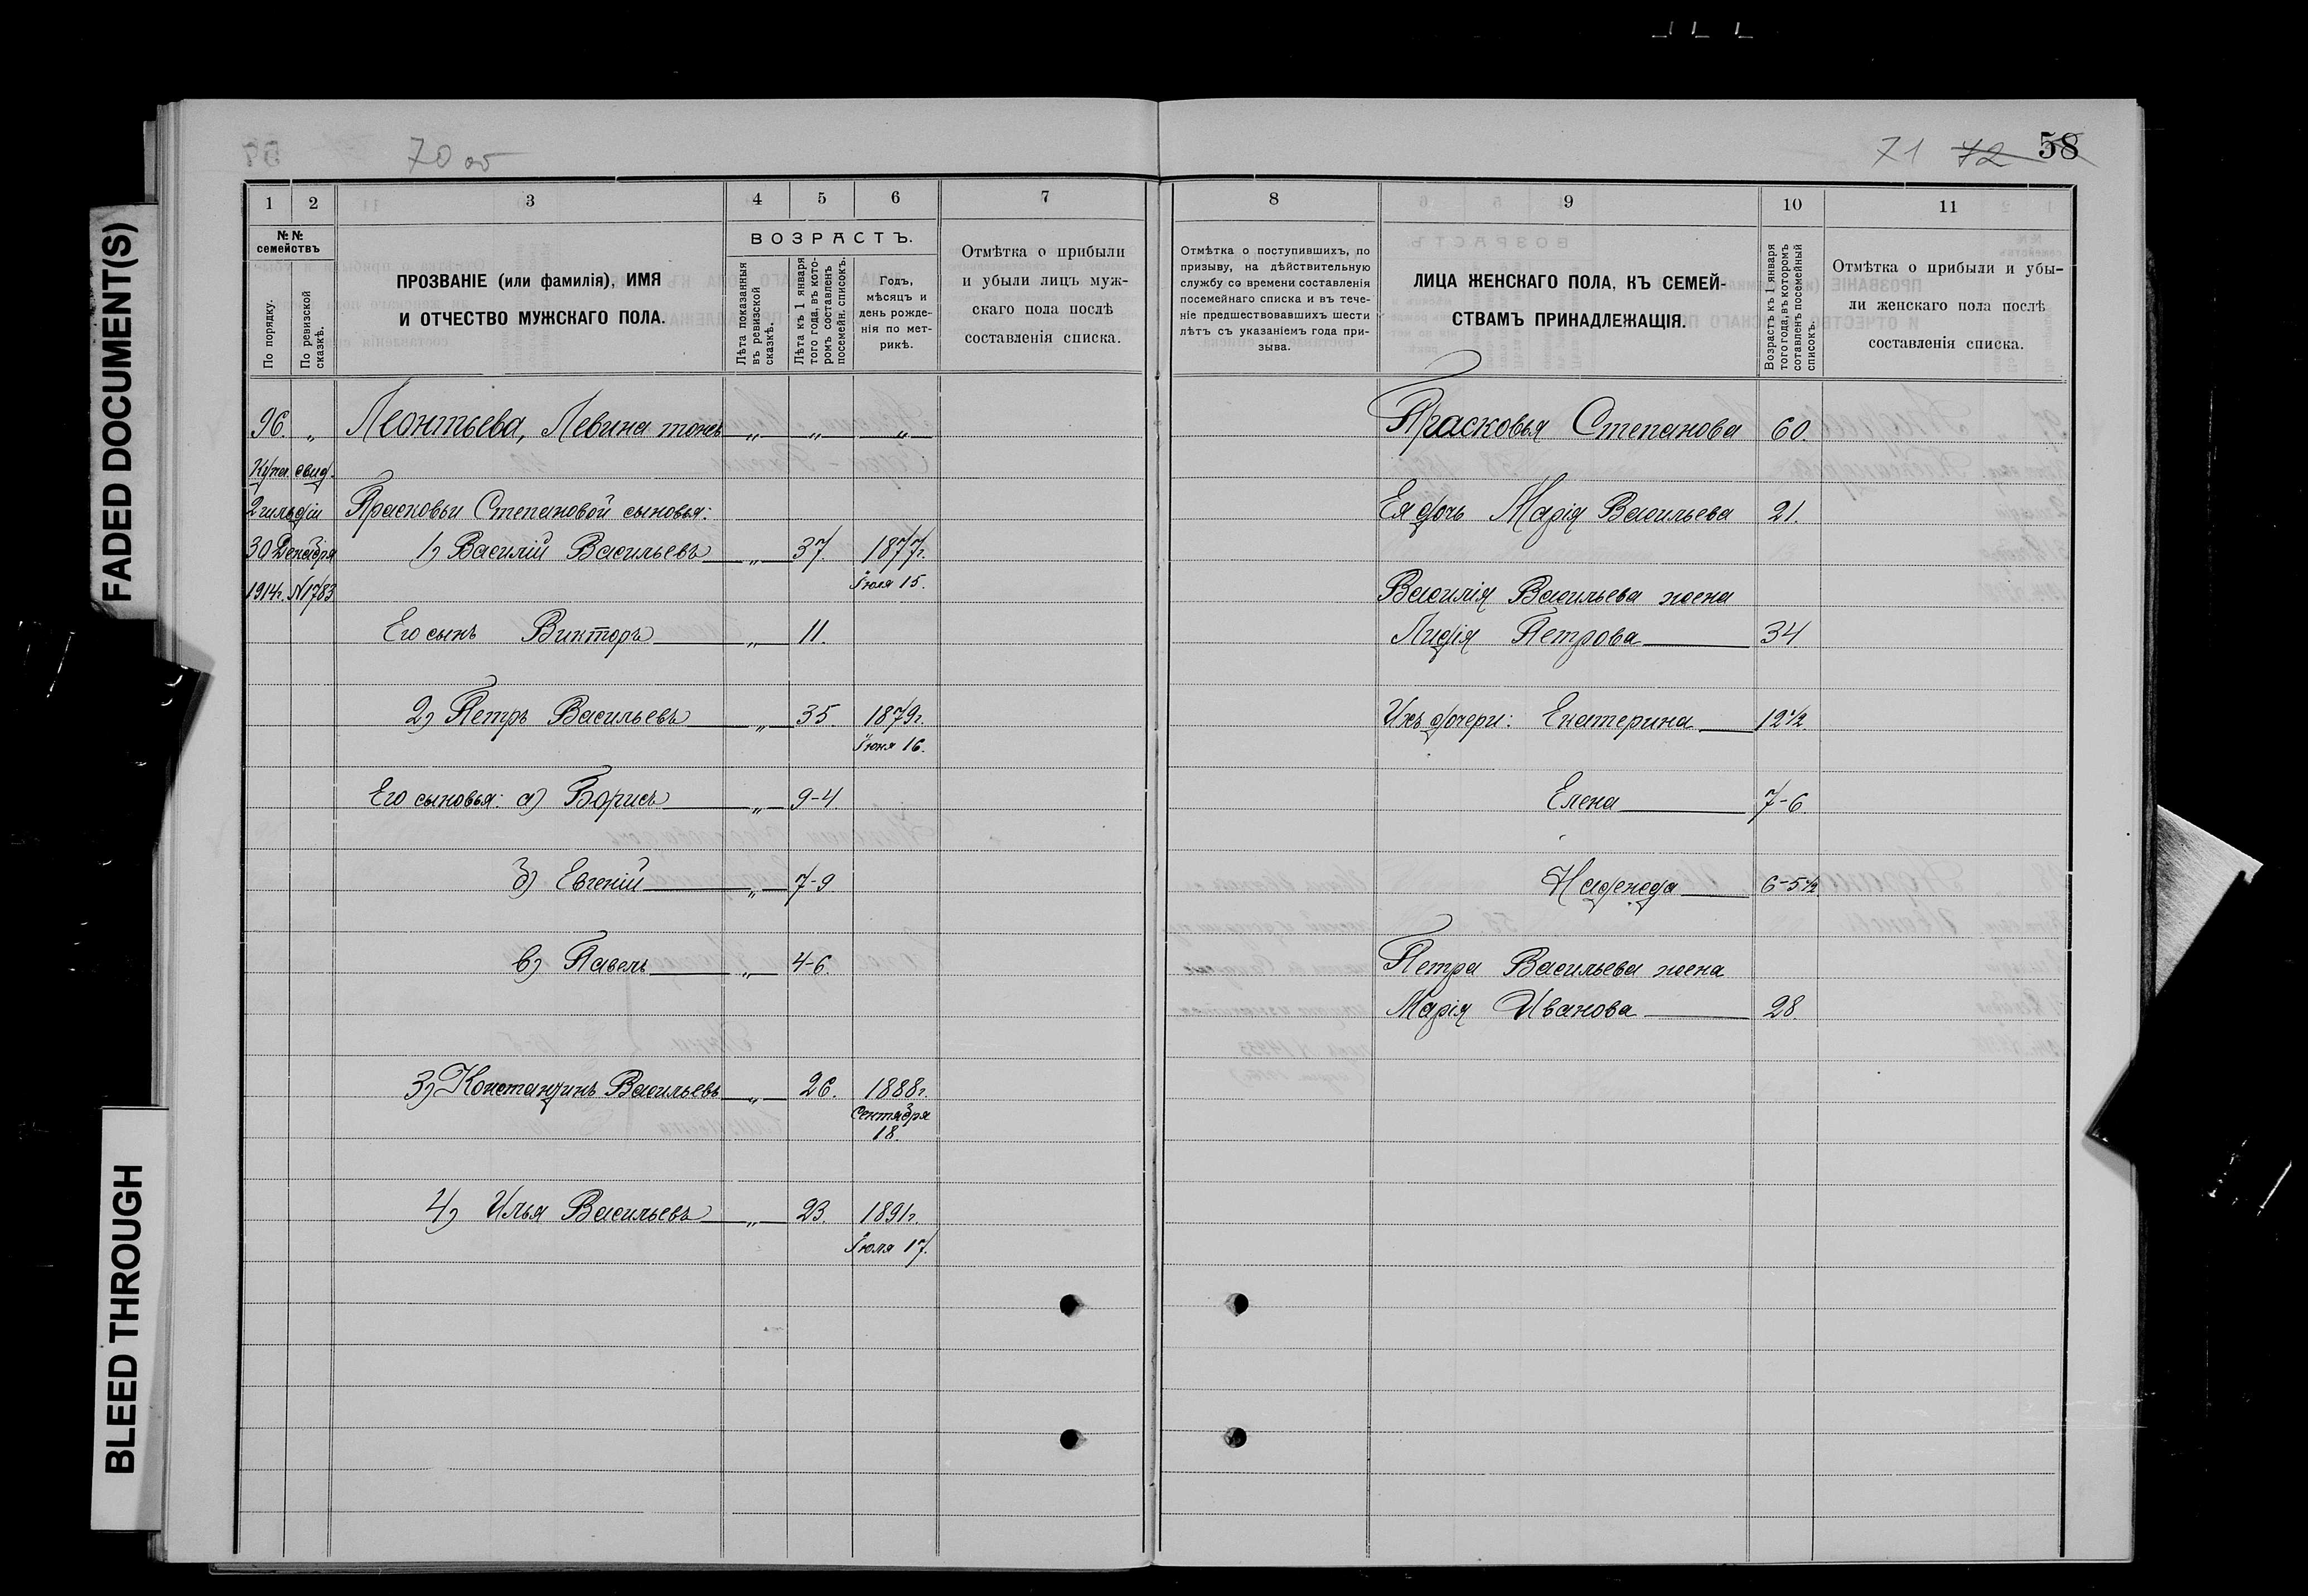 FADED DOCUMENT(S)
BLEED THROUGH
70 об
1
2
3
4
5
6
7
№№ семействъ
По порядку.
По ревизской сказкѣ.
ПРОЗВАНІЕ (или фамилія), ИМЯ
И ОТЧЕСТВО МУЖСКАГО ПОЛА.
ВОЗРАСТЪ.
Лѣта показанныя
въ ревизской
сказкѣ.
Лѣта къ 1 января
того года, въ кото-
ромъ составленъ
посемейн. списокъ.
Годъ,
мѣсяцъ и
день рожде-
нія по мет-
рикѣ.
Отмѣтка о прибыли
и убыли лицъ муж-
скаго пола послѣ
составленія списка.
96. „ Леонтьева, Левина тожъ „ „ „
Купеч. свид.
2 гильдіи Прасковьи Степановой сыновья:
30 Декабря 1) Василій Васильевъ „ 37. 1877г.
1914г. №1783 Іюля 15.
Его сынъ Викторъ „ 11.
2) Петръ Васильевъ „ 35. 1879г.
Іюня 16.
Его сыновья: а) Борисъ „ 9-4
б) Евгеній „ 7-9
в) Павелъ „ 4-6.
3) Константинъ Васильевъ „ 26. 1888г.
Сентября
18.
4) Илья Васильевъ „ 23. 1891г.
Іюля 17.
71 72 58
8
9
10
11
Отмѣтка о поступившихъ, по
призыву, на дѣйствительную
службу со времени составленія
посемейнаго списка и въ тече-
ніе предшествовавшихъ шести
лѣтъ съ указаніемъ года при-
зыва.
ЛИЦА ЖЕНСКАГО ПОЛА, КЪ СЕМЕЙ-
СТВАМЪ ПРИНАДЛЕЖАЩІЯ.
Возрастъ къ 1 января
того года, въ которомъ
сотавленъ посемейный
списокъ.
Отмѣтка о прибыли и убы-
ли женскаго пола послѣ
составленія списка.
Прасковья Степанова 60.
Ея дочь Марія Васильева 21.
Василія Васильева жена
Лидія Петрова 34.
Ихъ дочери: Екатерина 12½.
Елена 7-6.
Надежда 6-5½
Петра Васильева жена
Марія Иванова 28.